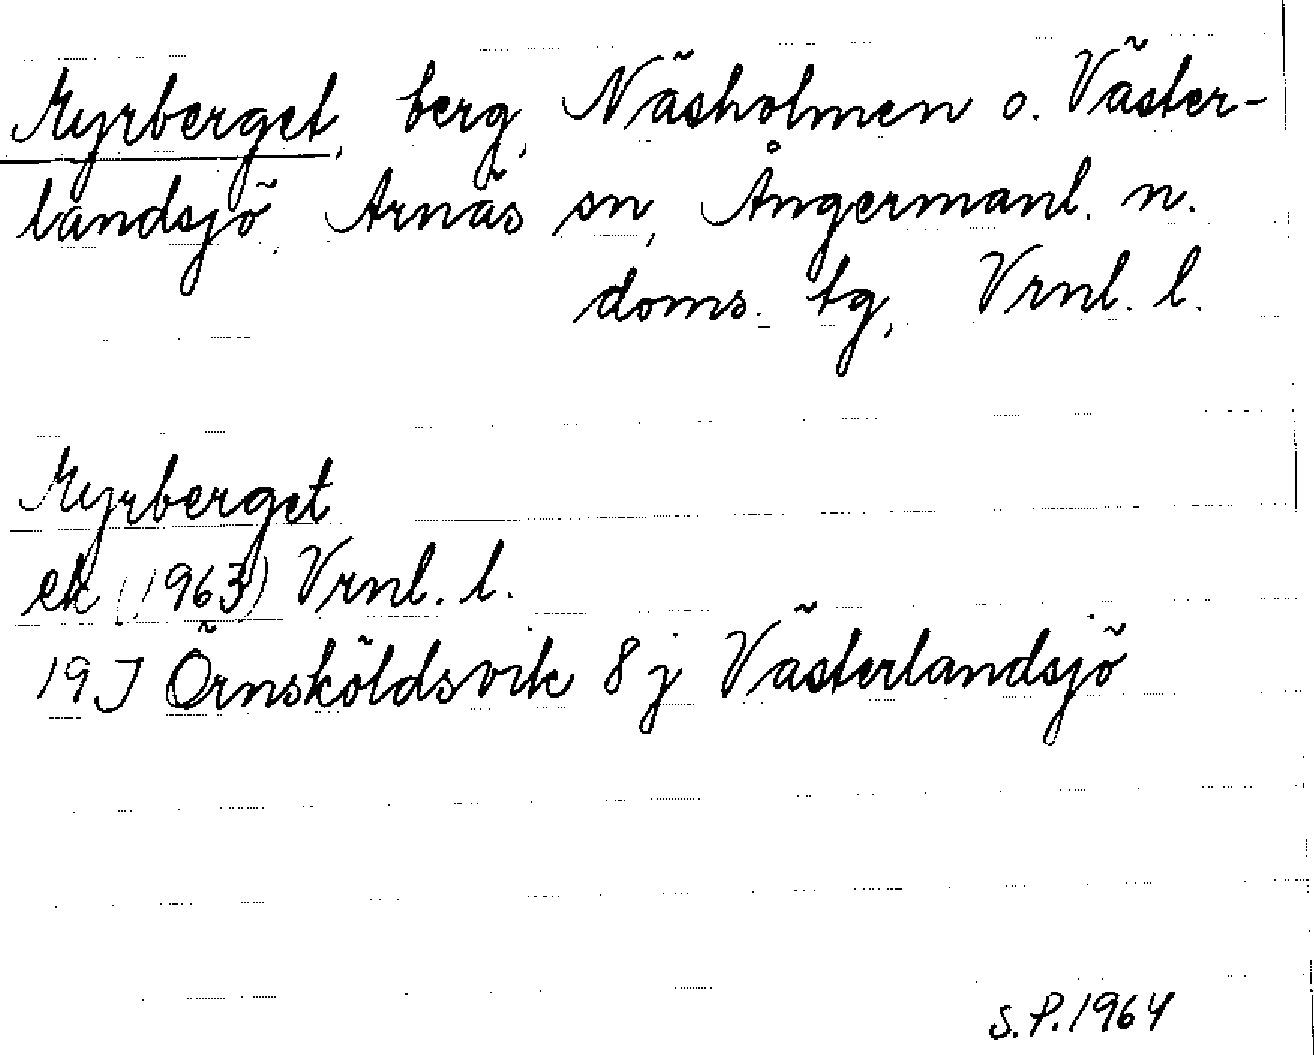 Myrberget, berg, Näsholmen o. Väster-
landsjö, Arnäs sn, Ångermanl. n.
doms. tg, Vrnl. l.
Myrberget
ek (1963) Vrnl. l.
19J Örnsköldsvik 8j Västerlandsjö
S.P.1964